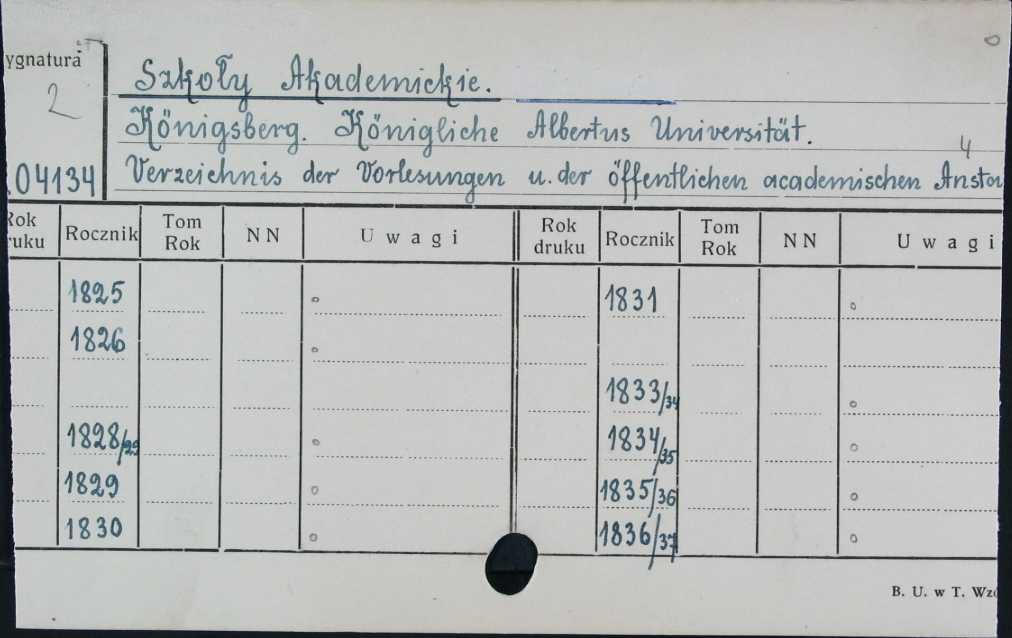 ygnatura
2
Szkoły Akademickie.
Königsberg. Königliche Albertus Universität.
4
04134
Verzeichnis der Vorlesungen u. der öffentlichen academischen Ansta
Rok druku Rocznik Tom Rok NN Uwagi Rok druku Rocznik Tom Rok NN Uwagi
1825 1831
1826
1833/34
1828/29 1834/35
1829 1835/36
1830 1836/37
B. U. w T. Wzó